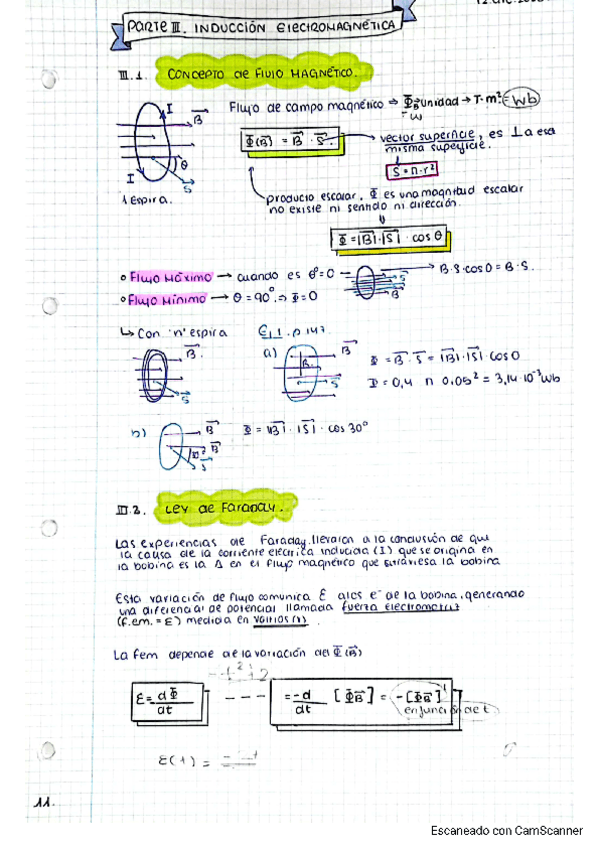 PARTE III. INDUCCIÓN ElECTROMAGNÉTICA
III.1. CONCEPTO de FlUJO MAGNÉTICO.
Flujo de campo magnético ⇒ Φ_B unidad → T·m² = Wb
I
B
θ
S
I
1 Espira.
Φ(B) = B · S.
vector superficie, es ⊥ a esa
misma superficie.
S = π·r²
producto escalar, Φ es una magnitud escalar
no existe ni sentido ni dirección.
Φ = |B|·|S| · cos θ
Flujo Máximo → cuando es θ = 0
B·S·cos 0 = B·S.
S
B
Flujo Mínimo → θ = 90° ⇒ Φ = 0
↳ Con 'n' espira
Ej 1. p 147.
B.
S
a)
B
S
Φ = B · S = |B|·|S| · cos 0
Φ = 0,4 π 0,05² = 3,14·10⁻³ Wb
b)
B
S
Φ = |B| · |S| · cos 30°
III.2. Ley de Faraday.
Las experiencias de Faraday llevaron a la conclusión de que
la causa de la corriente eléctrica inducida (I) que se origina en
la bobina es la Δ en el flujo magnético que atraviesa la bobina
Esta variación de flujo comunica E a los e⁻ de la bobina, generando
una diferencial de potencial llamada fuerza electromotriz
(f.em. = ε) medida en voltios (V).
La fem depende de la variación del Φ(B)
ε = dΦ/dt
= -d/dt [ΦB] = -[ΦB]'
en función de t
ε(1) =
11.
Escaneado con CamScanner